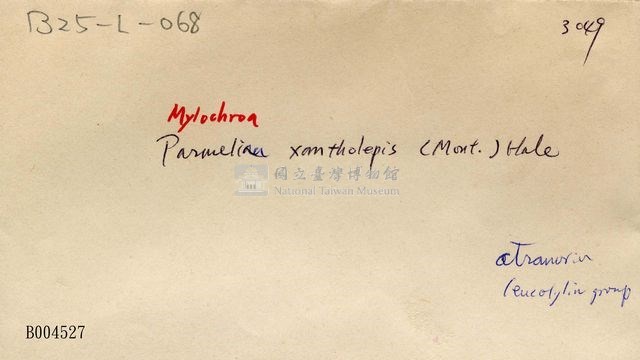 B25-L-068
3049
Mylochroa
Parmelina xantholepis (Mont.) Hale
國立臺灣博物館
National Taiwan Museum
atranorin
leucotylin group
B004527